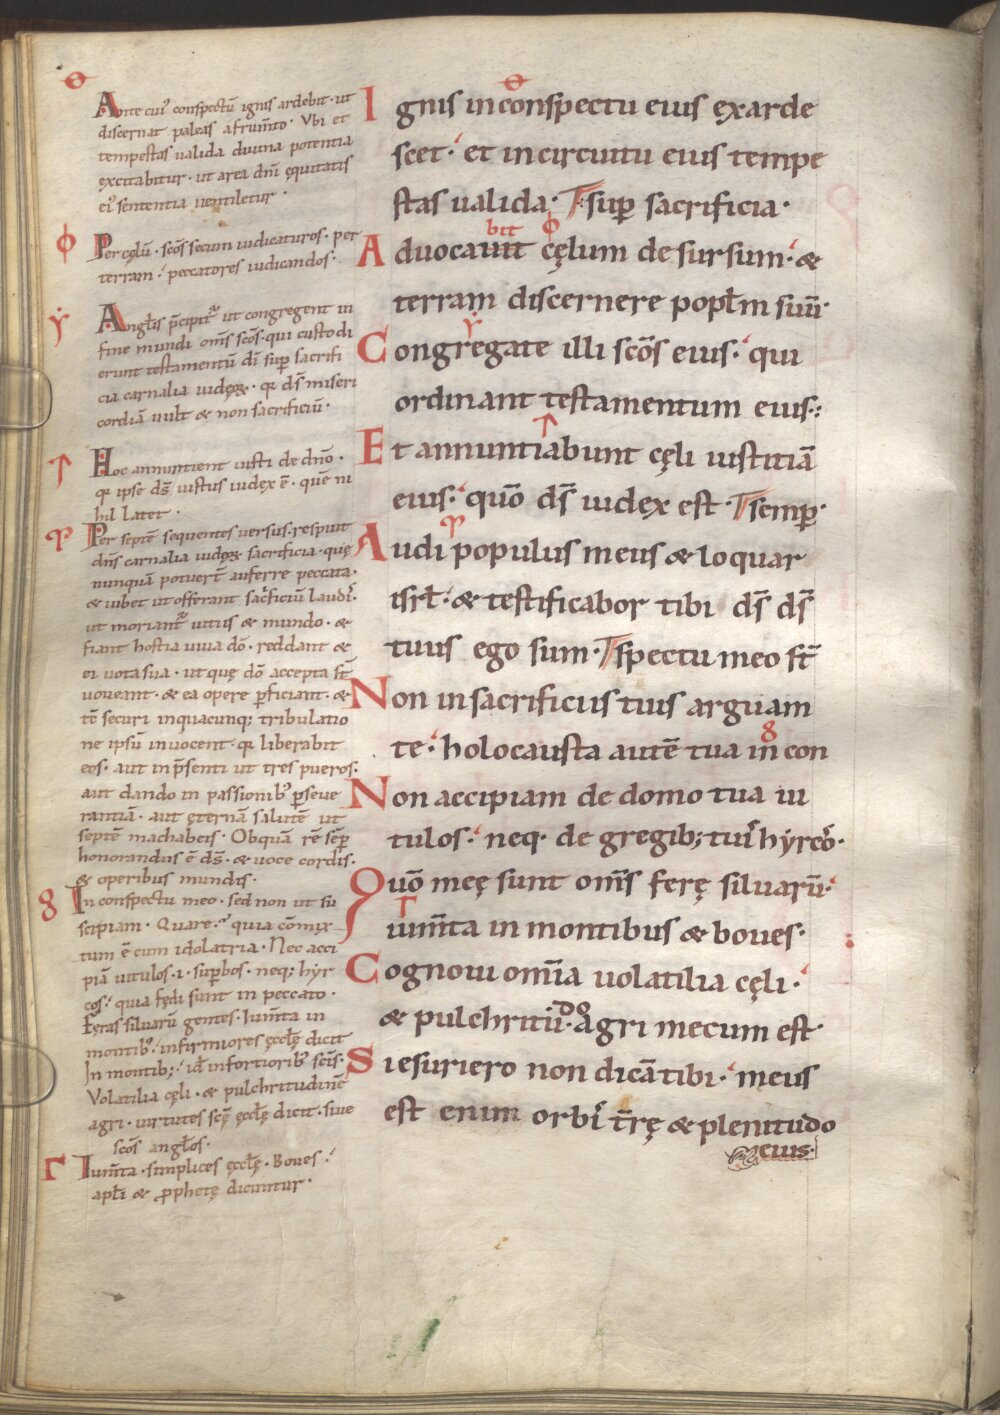 Ante cui' conspectū ignis ardebit · ut
discernat paleas a frum̄to · Ubi et
tempestas ualida diuina potentia
excitabitur · ut area dn̄i ęquitatis
ei' sententia uentiletur ·
Per cęlū · scōs secum iudicaturos · per
terram · peccatores iudicandos ·
Angl̄is p̄cipit᷑ ut congregent in
fine mundi om̄s scōs · qui custodi
erunt testamentū dī sup̄ sacrifi
cia carnalia iudęoꝝ · qr ds̄ miseri
cordiā uult & non sacrificiū ·
Hoc annuntient iusti de dn̄o ·
qr ipse ds̄ iustus iudex ē · quē ni
hil latet ·
Per septē sequentes uersus · respuit
dn̄s carnalia iudęoꝝ sacrificia · quę
nunquā potuer̄t auferre peccata ·
& iubet ut offerant sac̄ficiū laudī ·
ut moriant᷑ uitiis & mundo · &
fiant hostia uiua dō · reddant &
ei uota sua · ut quę dō accepta st̄
uoueant · & ea opere p̄ficiant · &
tē securi in quacunq; tribulatio
ne ipsū inuocent · qr liberabit
eos · aut in p̄senti ut tres pueros ·
aut dando in passionib' p̄seue
rantiā · aut ęternā salutē ut
septē machabeis · Ob quā rē sēp
honorandus ē ds̄ · & uoce cordis ·
& operibus mundis ·
In conspectu meo · sed non ut su
scipiam · Quare · quia cōmix
tum ē cum idolatria · Nec acci
piā uitulos · i · sup̄bos · neq; hyr
cos · quia fędi sunt in peccato ·
Feras siluarū gentes · Ium̄ta in
montib' · infirmiores ęccl̄ę dicit
In montib; · id̄ in fortiorib' scīs ·
Volatilia cęli · & pulchritudinē
agri · uirtutes scę̄ ęccl̄ę dicit · siue
scōs angl̄os ·
Ium̄ta · simplices ęccl̄ę · Boues ·
apl̄i & prophetę dicuntur ·
Ignis in conspectu eius exarde
scet · et in circuitu eius tempe
stas ualida · sup̄ sacrificia ·
bit
Aduocauit cęlum de sursum · &
terram discernere popl̄m suū ·
Congregate illi scōs eius · qui
ordinant testamentum eius ·
Et annuntiabunt cęli iustitiā
eius · quō ds̄ iudex est · semp̄ ·
Audi populus meus & loquar
isrl̄ · & testificabor tibi ds̄ ds̄
tuus ego sum · spectu meo st̄
Non in sacrificiis tuis arguam
te · holocausta autē tua in con
Non accipiam de domo tua ui
tulos · neq · de gregib; tuī hyrcō ·
Quō meę sunt om̄s ferę siluarū ·
ium̄ta in montibus & boues ·
Cognoui om̄ia uolatilia cęli ·
do
& pulchritū · agri mecum est ·
Si esuriero non dicā tibi · meus
est enim orbī t̄rę & plenitudo
eius ·